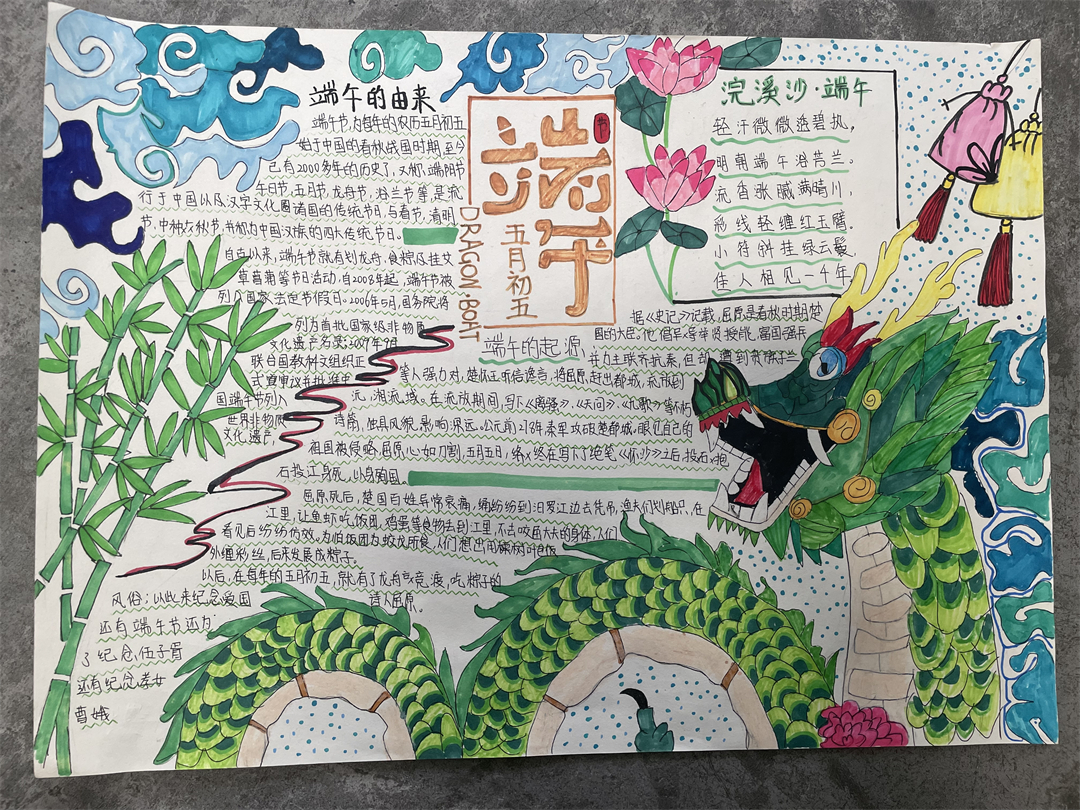 端午的由来
端午节,为每年的农历五月初五
始于中国的春秋战国时期,至今
已有2000多年的历史了,又称,端阳节
午日节,五月节,龙舟节,浴兰节等,是流
行于中国以及汉字文化圈诸国的传统节日,与春节,清明
节,中秋节,并称为中国汉族的四大传统节日。
自古以来,端午节就有划龙舟,食粽及挂艾
草菖蒲等节日活动,自2008年起,端午节被
列为国家法定节假日。2006年5月,国务院将
列为首批国家级非物质
文化遗产名录;2009年9月
联合国教科文组织正
式审议并批准中
国端午节列入
世界非物质
文化遗产。
端午
节
五月初五
DRAGON·BOAT
浣溪沙·端午
轻汗微微透碧纨,
明朝端午浴芳兰。
流香涨腻满晴川,
彩线轻缠红玉臂。
小符斜挂绿云鬟,
佳人相见一千年
端午的起源
据《史记》记载,屈原是春秋时期楚
国的大臣。他倡导举贤授能,富国强兵
并力主联齐抗秦,但却遭到贵族子兰
等人强力反对,楚怀王听信谗言,将屈原赶出都城,流放到
沅、湘流域。在流放期间,写下《离骚》、《天问》、《九歌》等
诗篇,独具风貌,影响深远。公元前278年秦军攻破楚都城,眼见自己的
祖国被侵略,屈原心如刀割,五月五日,终在写下了绝笔《怀沙》之后,投石,抱
石投江身死,以身殉国。
屈原死后,楚国百姓异常哀痛,纷纷到汨罗江边去凭吊,渔夫们划船只,在
江里,让鱼虾吃饭团,鸡蛋等食物丢到江里,不去咬屈大夫的身体,人们
看见后纷纷仿效。为怕饭团为蛟龙所食,人们想出用楝树叶包饭
外缠彩丝,后来发展成粽子。
以后,在每年的五月初五,就有了龙舟竞渡,吃粽子的
风俗;以此来纪念爱国
诗人屈原。
还有端午节还为
了纪念伍子胥
还有纪念孝女
曹娥